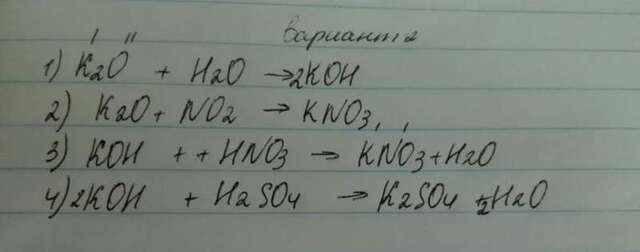 вариант 2
1) K2O + H2O → 2KOH
2) K2O + NO2 → KNO3
3) KOH + + HNO3 → KNO3 + H2O
4) 2KOH + H2SO4 → K2SO4 + 2H2O